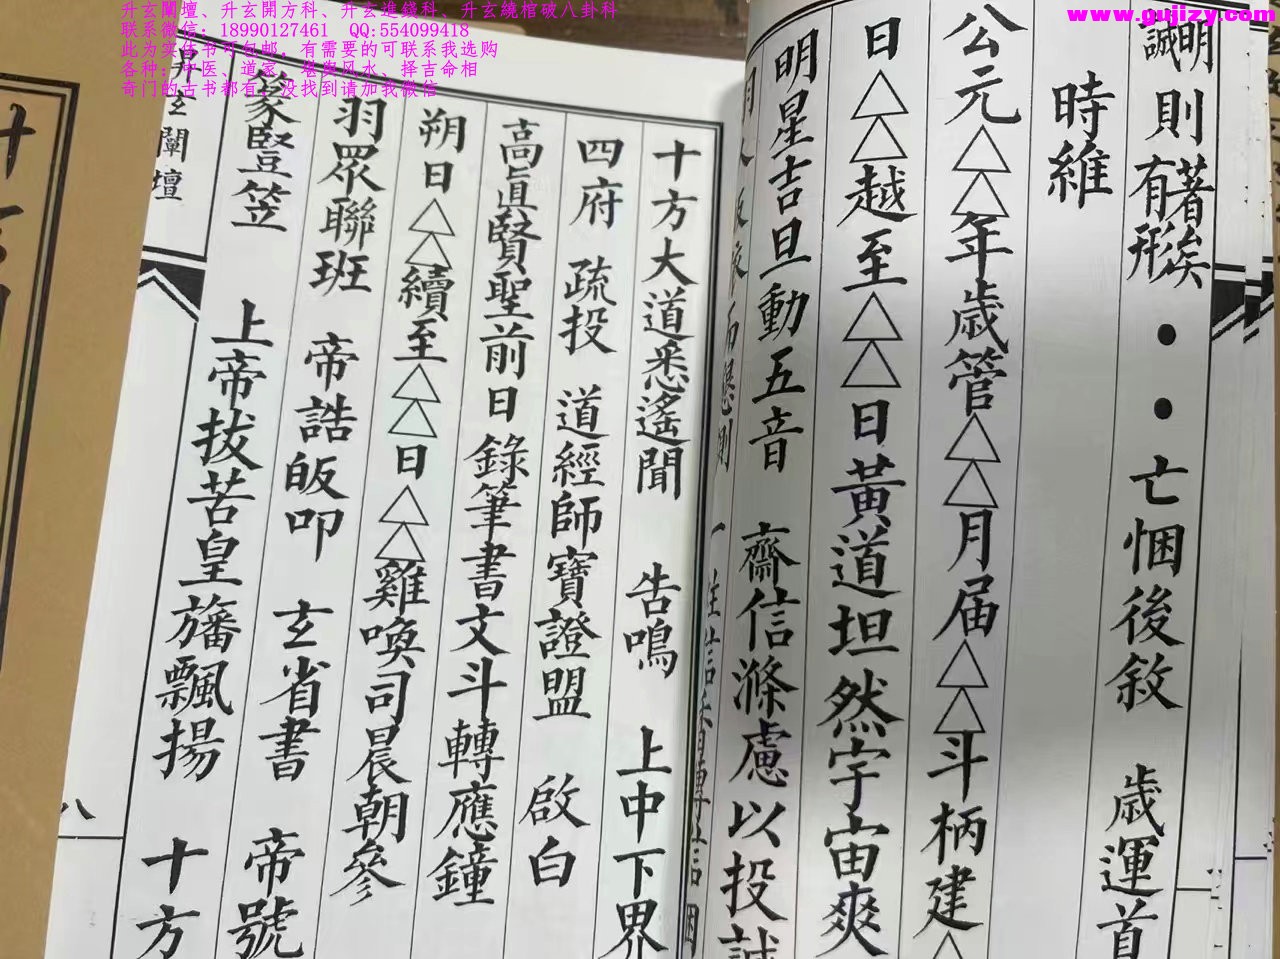 升玄闡壇、升玄開方科、升玄進錢科、升玄繞棺破八卦科
联系微信：18990127461 QQ:554099418
此为实体书可包邮，有需要的可联系我选购
各种：中医、道家、堪舆风水、择吉命相
奇门的古书都有，没找到请加我微信
www.gujizy.com
明則有形
誠則著矣
••亡悃後敘 歲運首
時維
公元△△年歲管△△月届△△斗柄建△
日△△越至△△日黃道坦然宇宙爽
明星吉旦動五音 齋信滌慮以投誠
十方大道悉遙聞 告鳴 上中下界
四府 疏投 道經師寶證盟 啟白
高眞賢聖前日錄筆書文斗轉應鐘
朔日△△續至△△日△△雞喚司晨朝參
羽眾聯班 帝誥皈叩 玄省書 帝號
篆豎笠 上帝拔苦皇旛飄揚 十方
升玄闡壇
八